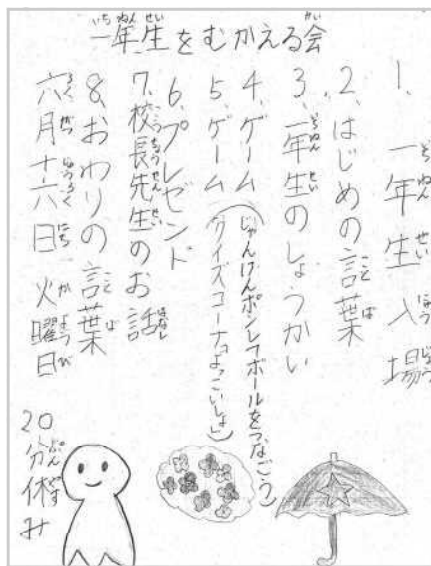 一年生をむかえる会
1、一年生入場
2、はじめの言葉
3、一年生のしょうかい
4、ゲーム（じゃんけんポン ボールをつなごう）
5、ゲーム（クイズコーナ よっこいしょ）
6、プレゼンド
7、校長先生のお話
8、おわりの言葉
六月十六日 火曜日
20分休み